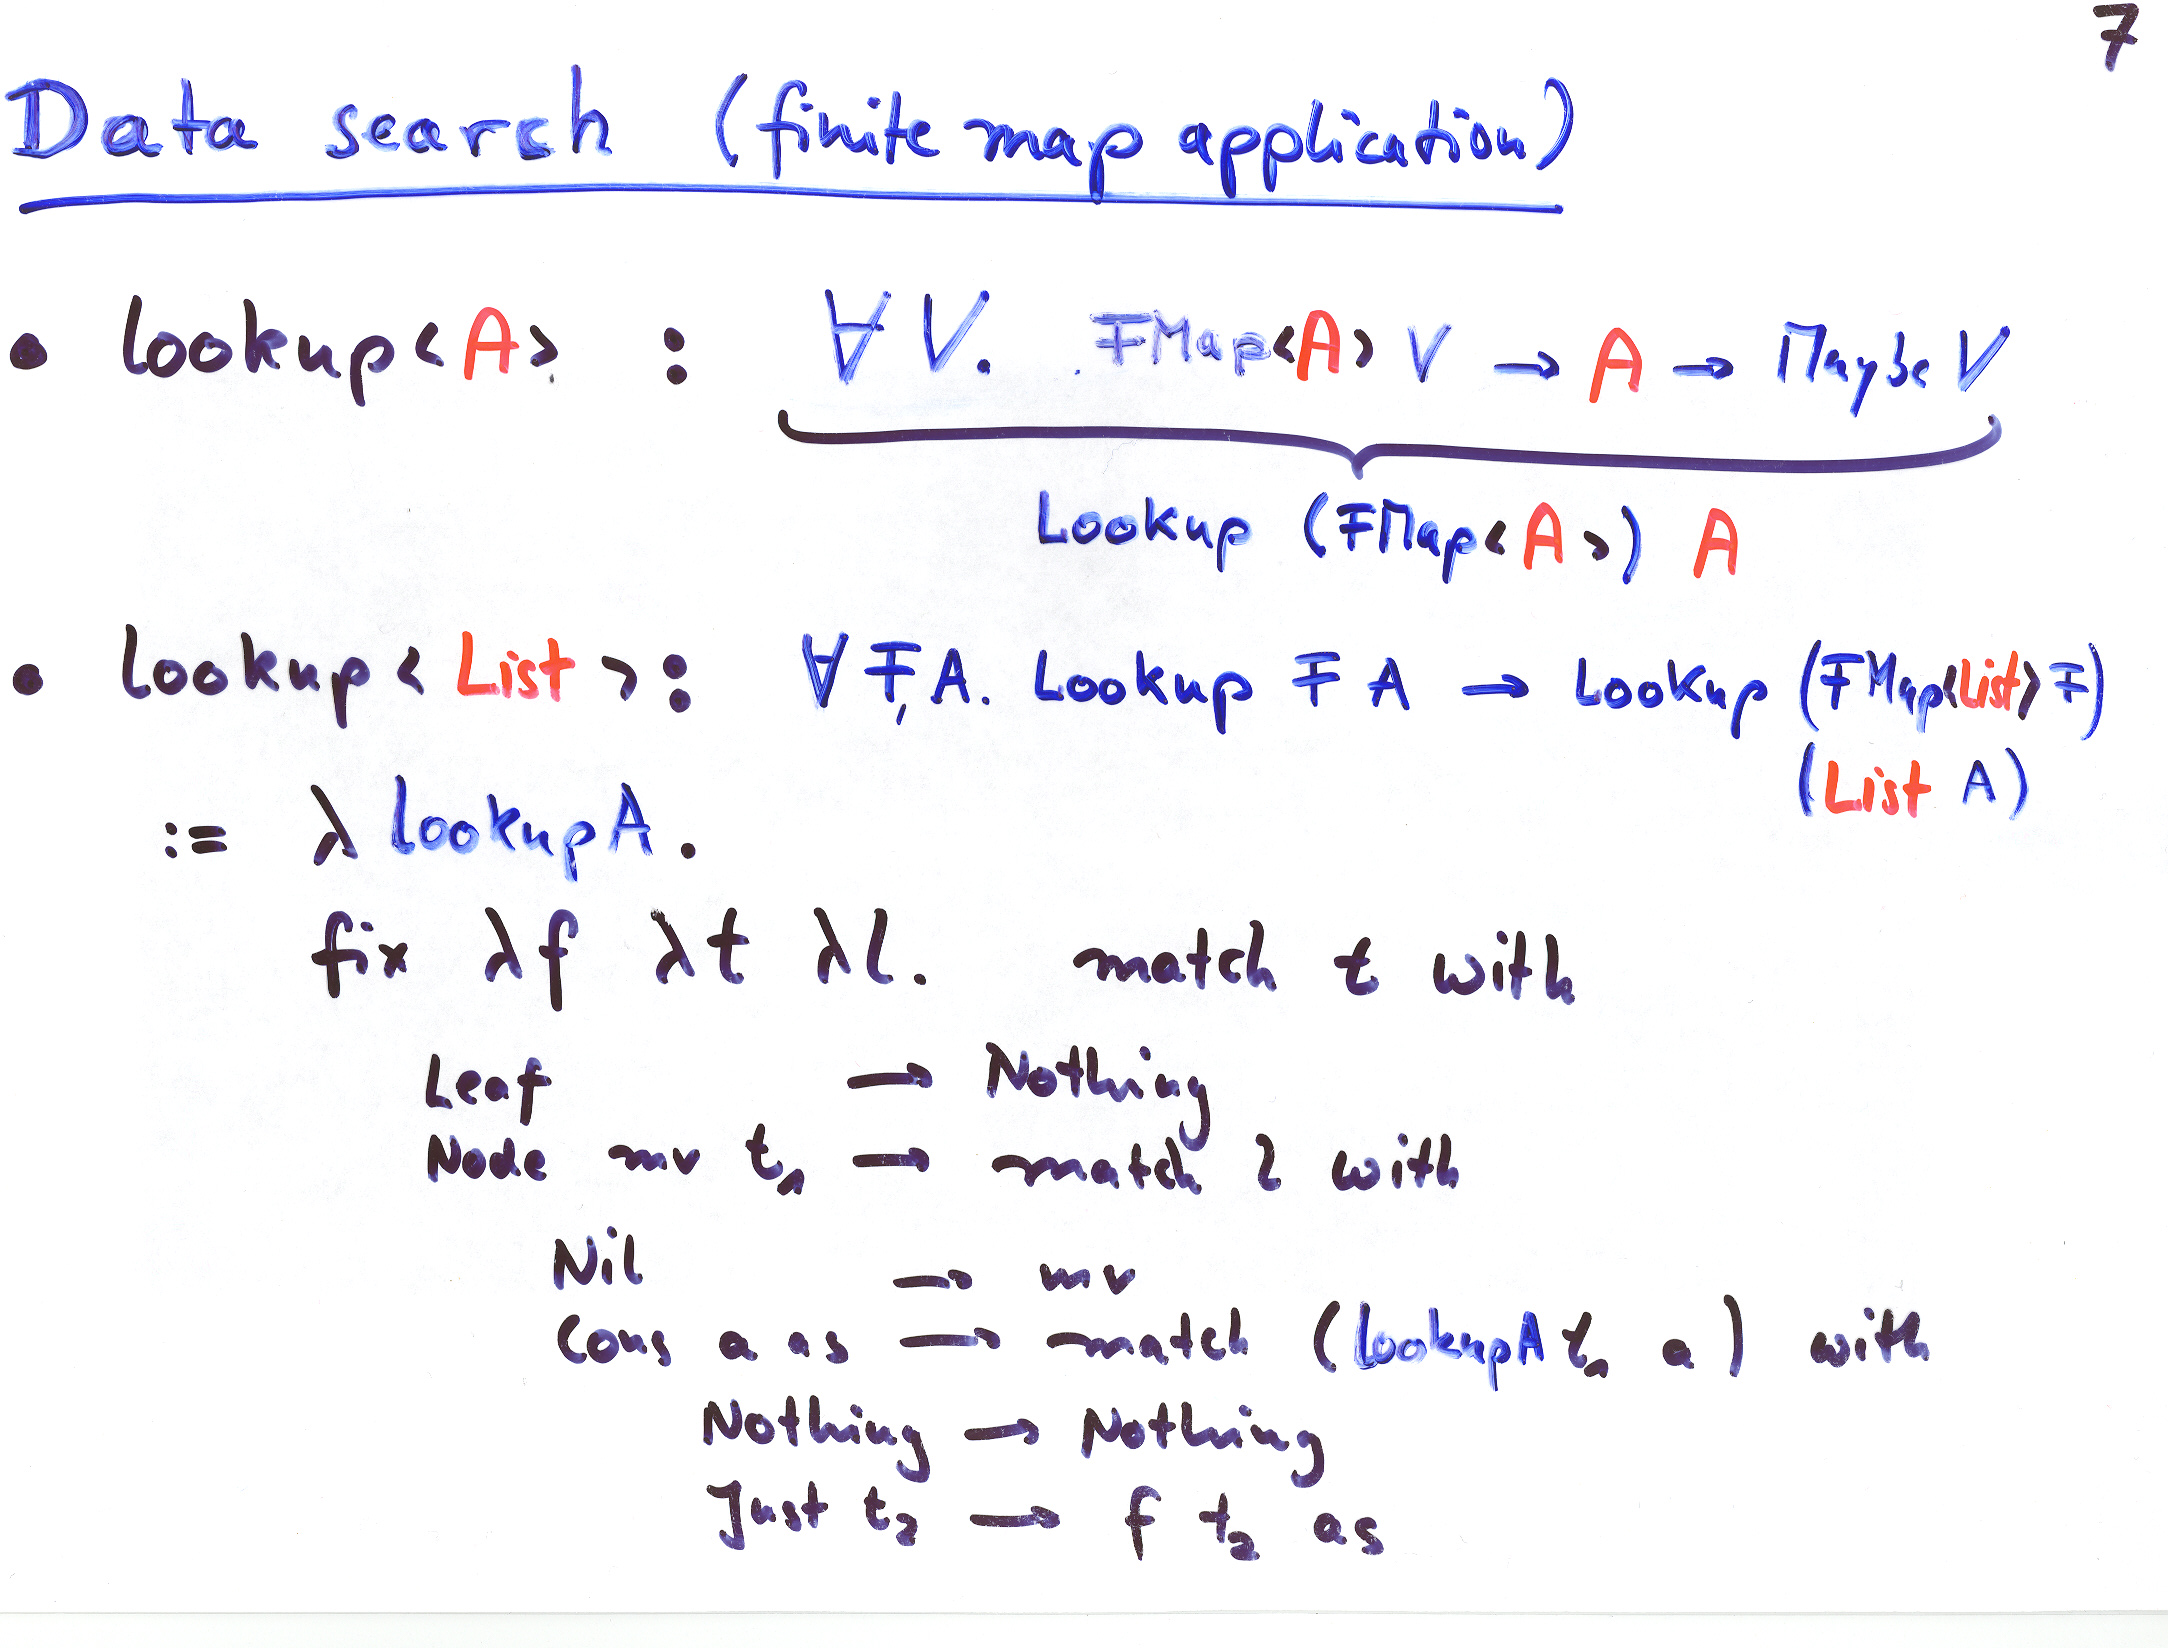 7
Data search (finite map application)
• lookup<A> : ∀ V. FMap<A> V → A → Maybe V
Lookup (FMap<A>) A
• lookup<List> : ∀ F, A. Lookup F A → Lookup (FMap<List> F)
(List A)
:= λ lookupA.
fix λf λt λl. match t with
Leaf → Nothing
Node mv t₁ → match l with
Nil → mv
Cons a as → match (lookupA t₁ a) with
Nothing → Nothing
Just t₂ → f t₂ as